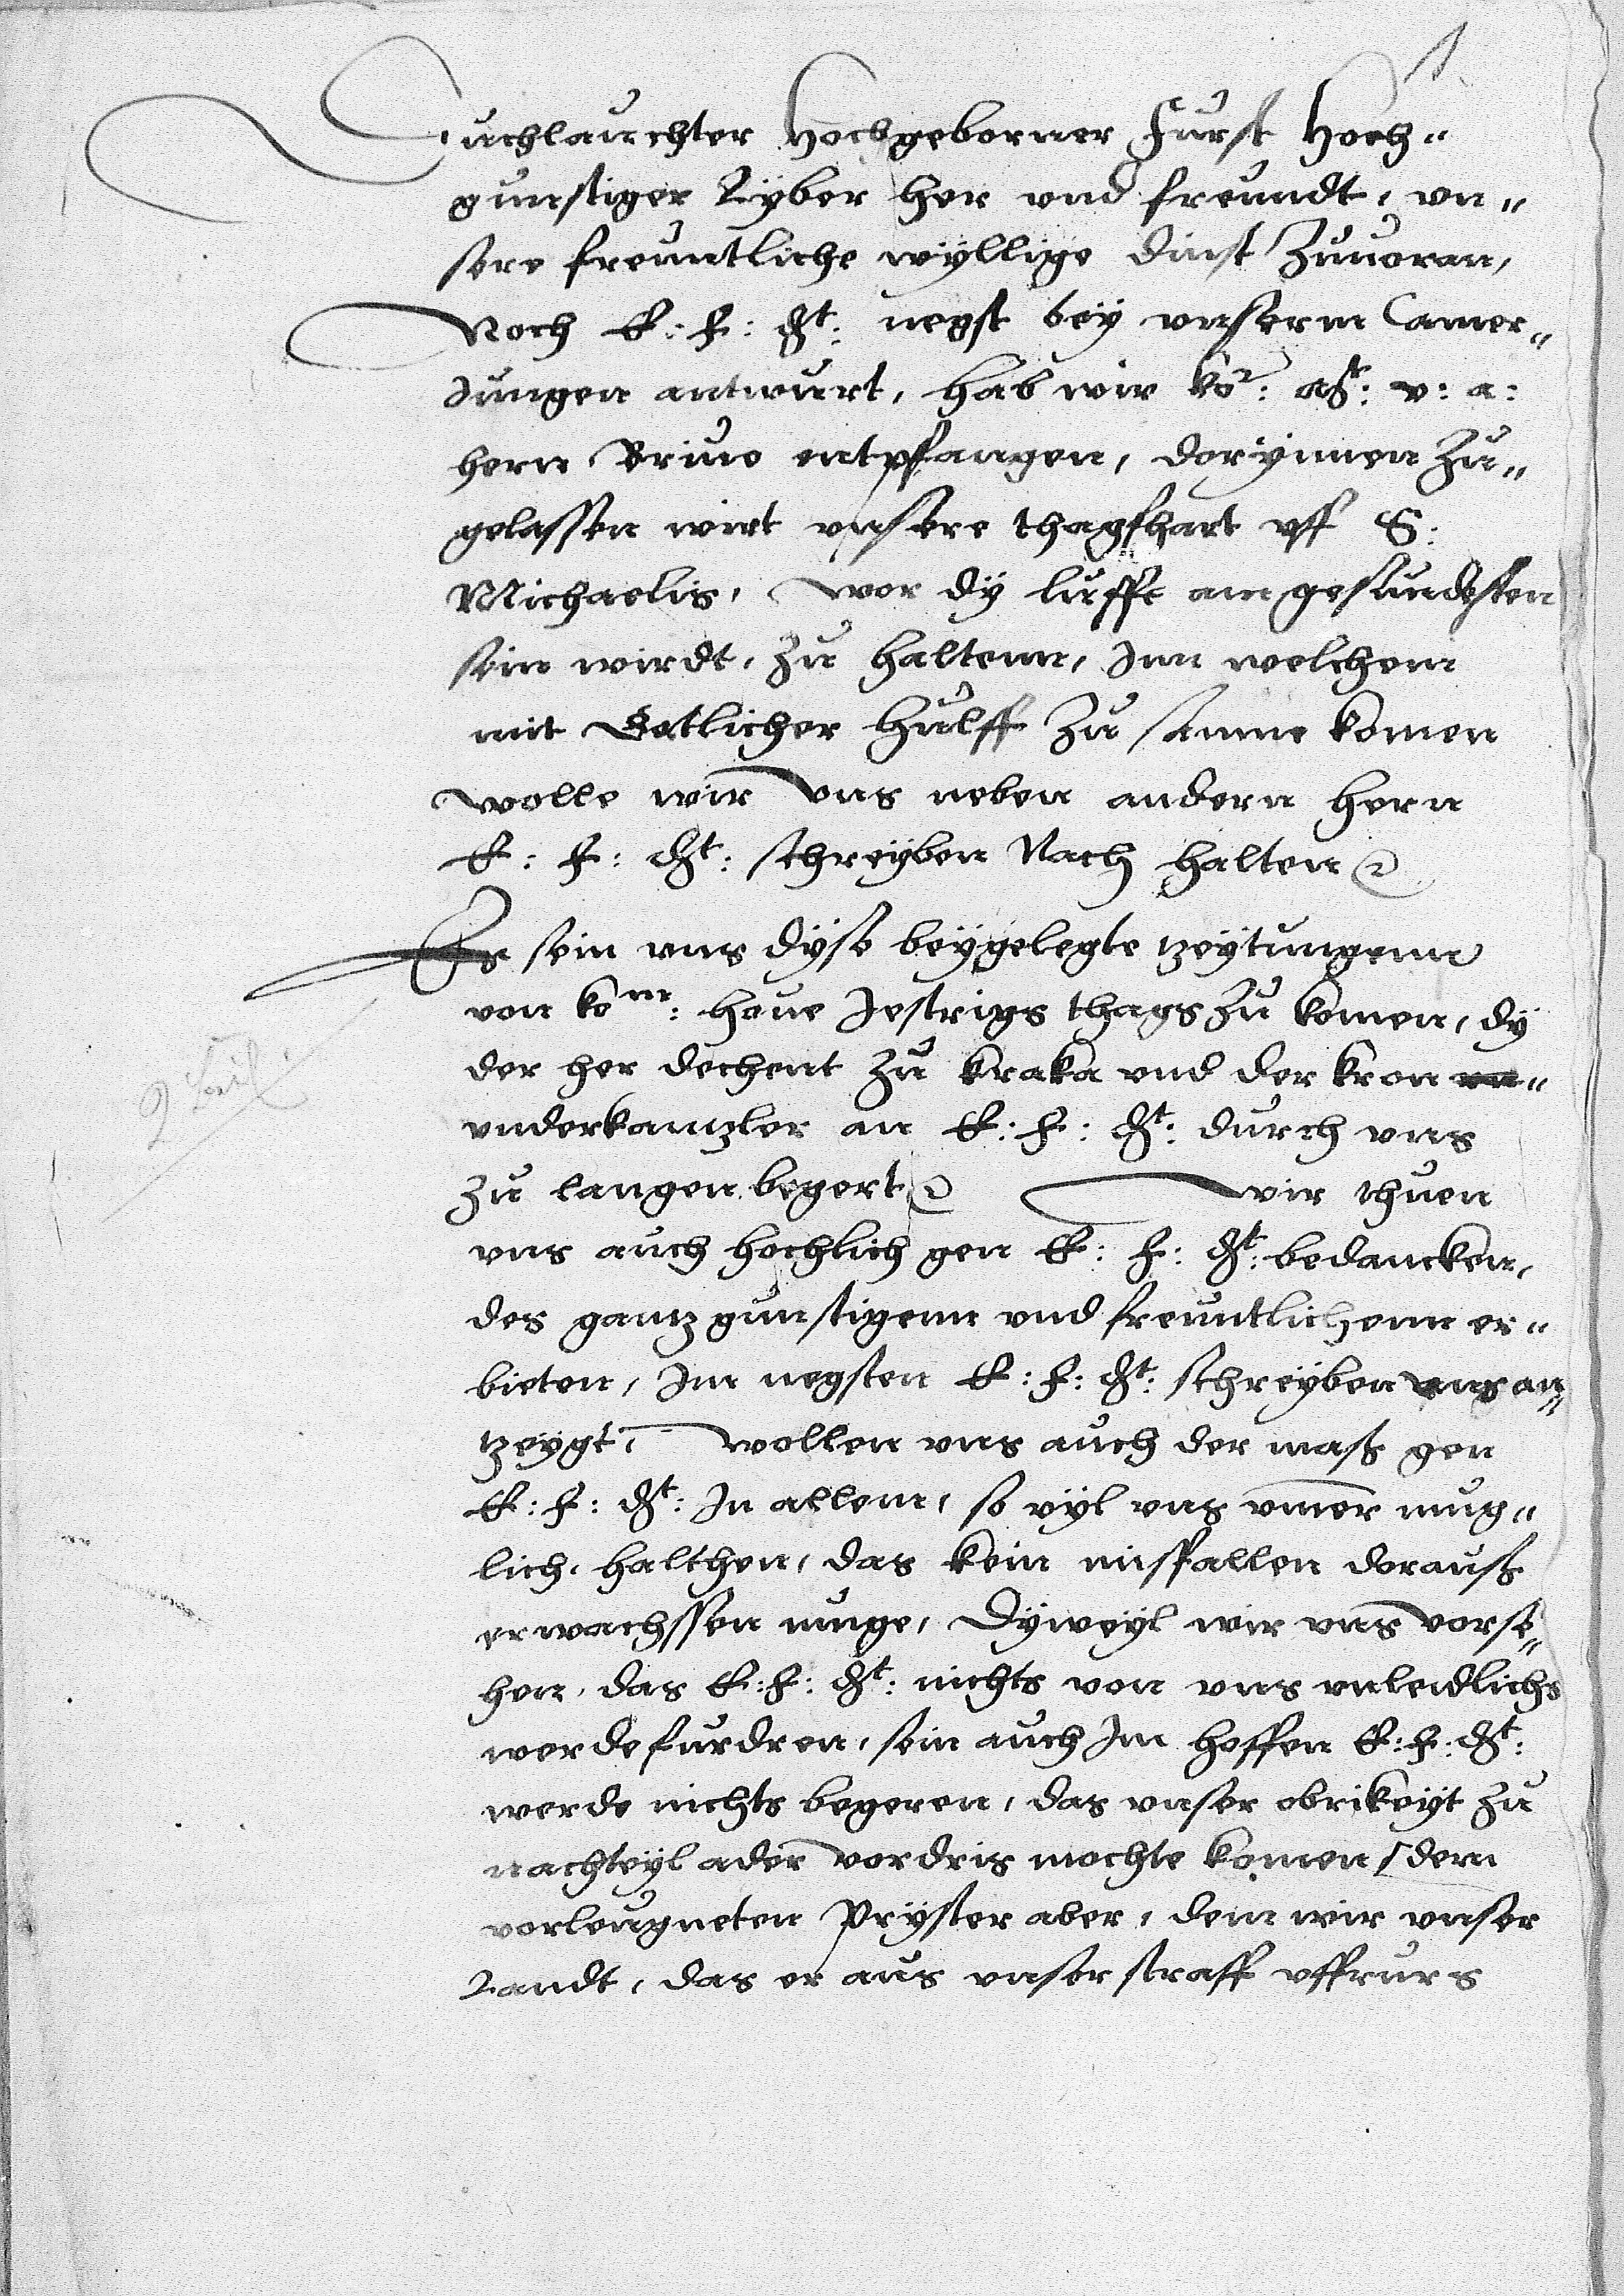 Durchlauchter Hochgeborner Furst Hoch„
gunstiger Lyber her vnd freundt, vn„
sere freuntliche wyllige dinst Zuuoran,
Noch E: F: Gt: negst bey vnserm Camer„
Jungen antwurt, hab wir ko r: Mt: v: a:
hern Briue entpfangen, dorynnen Zu„
gelassen wirt vnsere thagfhart vff S:
Michaelis, wor dy lufft am gesundesten
sein wirdt, Zu haltenn, Jnn welchem
mit Gotlicher Hulff Zu samne komen
wolle wir vns neben andern hern
E: F: Gt: schreyben Nach halten
Es sein vns dyse beygelegte tzeytungenn
von ko m: houe Jestrigs thags Zu komen, dy
der her dechent Zu kraka vnd der kron
vnderkanzler an E: F: Gt: durch vns
Zu langen begert wir thuen
vns auch hochlich gen E: F: Gt: bedancken,
des gantz gunstigenn vnd freuntlichenn er„
bieten, Jm negsten E: F: Gt: schreyben vns an„
tzeygt, wollen vns auch der mass gen
E: F: Gt: Jn allem, so vyl vns vmer mug„
lich, halthen, das kein misfallen doraus
erwachssen muge, Dyweyl wir vns vorse„
hen, das E: F: Gt: nichts von vns vnleidlichs
werde furdren, sein auch Jm hoffen E: F: Gt:
werde nichts begeren, das vnser obrikeyt Zu
nachteyl ader vordris mochte komen / dem
vorleugneten Pryster aber, dem wir vnser
Landt, das er aus vnser straff vffrurs